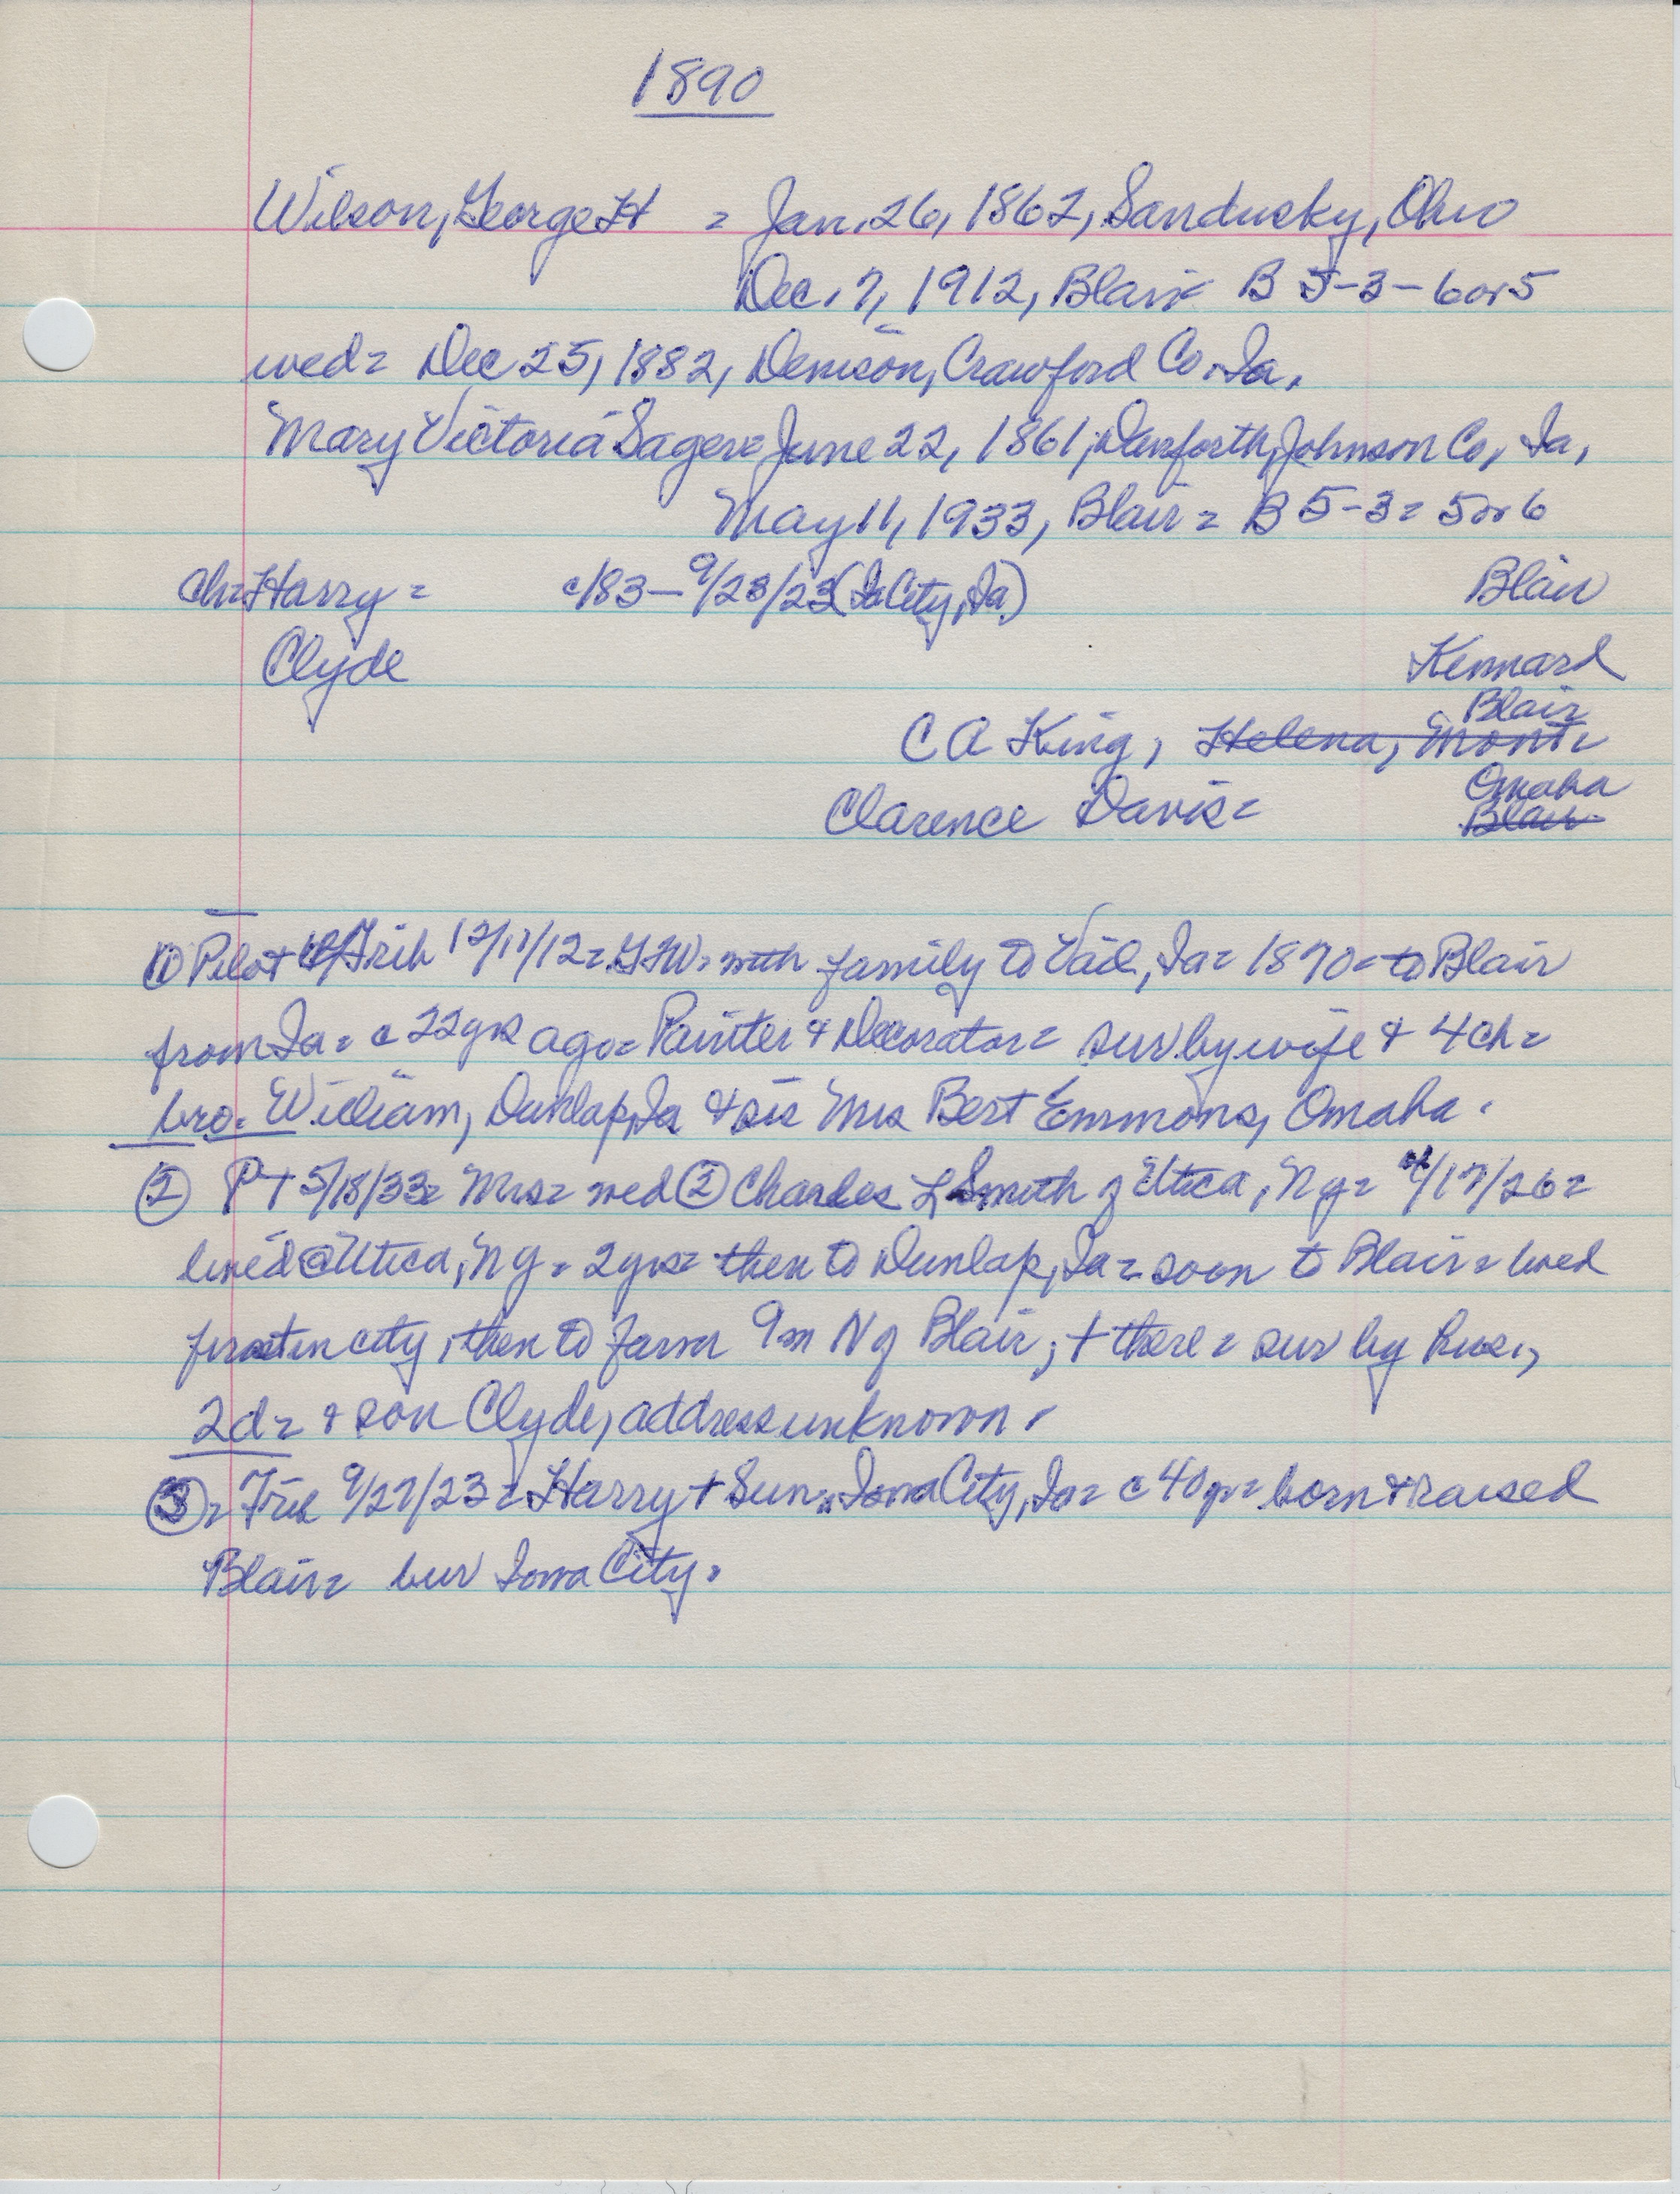 1890
Wilson, George H = Jan. 26, 1862, Sandusky, Ohio
Dec. 7, 1912, Blair B 5-3-6 or 5
wed = Dec 25, 1882, Denison, Crawford Co. Ia.
Mary Victoria Sager = June 22, 1861, Danforth, Johnson Co, Ia,
May 11, 1933, Blair = B 5-3 = 5 or 6
ch = Harry = c/83 - 9/23/23 (Ia City, Ia) Blair
Clyde Kennard
Blair
C A King, Helena, Mont.
Omaha
Clarence Davis = Blair
① Pilot Trib 12/11/12 = G.H.W. with family to Vail, Ia = 1870 = to Blair
from Ia = c 22 yrs ago = Painter & Decorator = sur by wife & 4 ch =
bro. William, Dunlap, Ia & sis Mrs Bert Emmons, Omaha.
② PT 5/18/33 = Mrs = wed ② Charles L Smith of Utica, Ny = 4/17/26 =
lived @ Utica, Ny = 2 yrs = then to Dunlap, Ia = soon to Blair = lived
first in city, then to farm 9m N of Blair; + there = sur by hus.,
2d = & son Clyde, address unknown.
③ = Trib 9/27/23 = Harry + Sun., Iowa City, Ia = c 40 yr = born & raised
Blair = bur Iowa City.